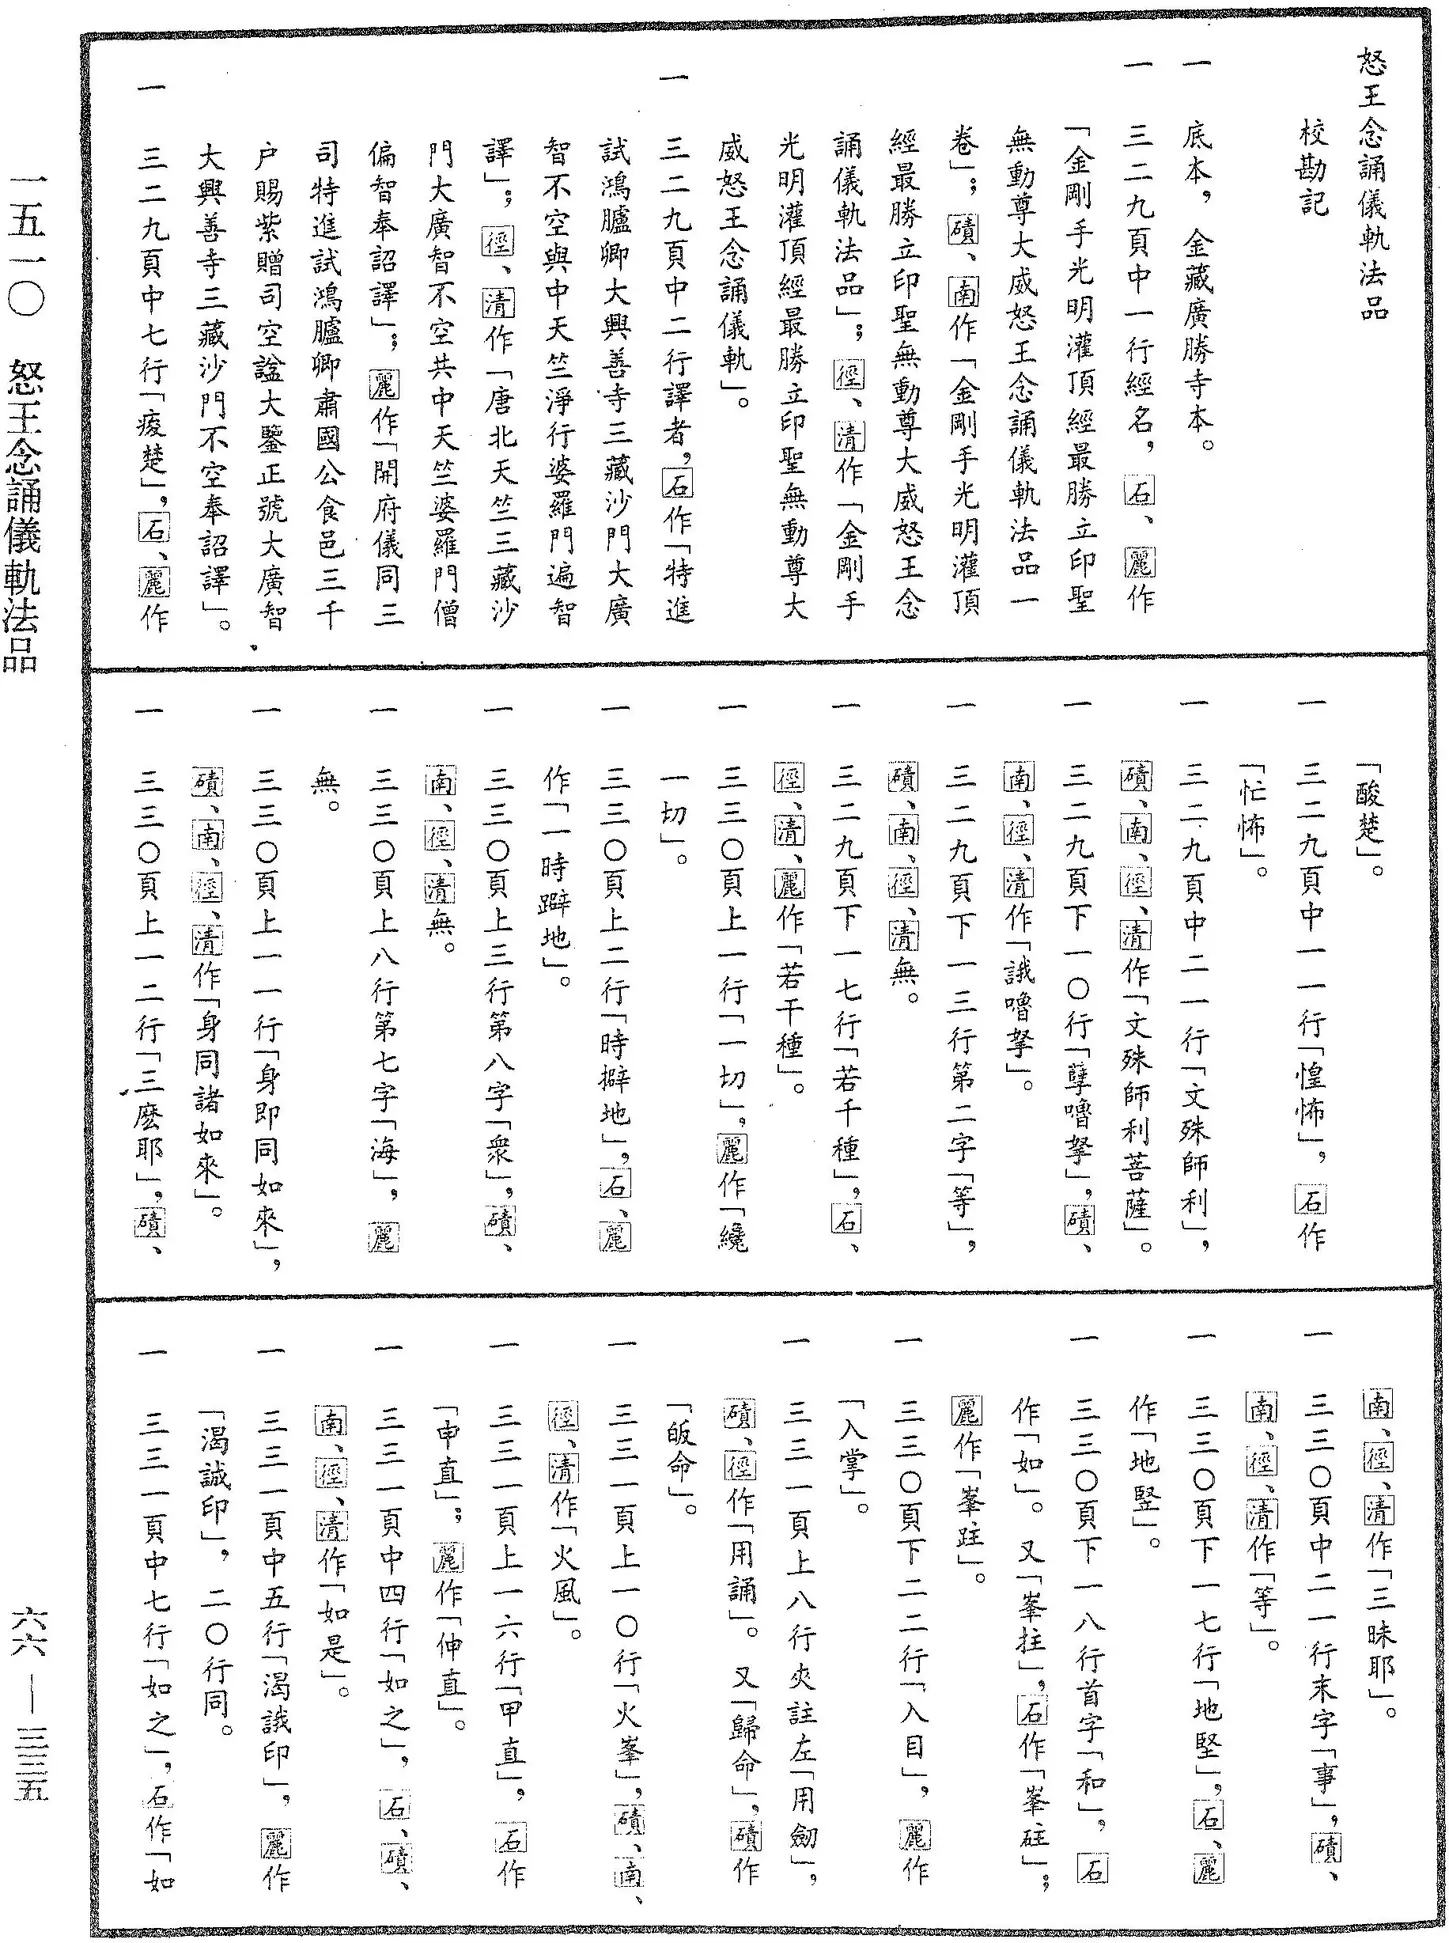 怒王念誦儀軌法品
校勘記
一 底本，金藏廣勝寺本。
一 三二九頁中一行經名，石、麗作
「金剛手光明灌頂經最勝立印聖
無動尊大威怒王念誦儀軌法品一
卷」；磧、南作「金剛手光明灌頂
經最勝立印聖無動尊大威怒王念
誦儀軌法品」；徑、清作「金剛手
光明灌頂經最勝立印聖無動尊大
威怒王念誦儀軌」。
一 三二九頁中二行譯者，石作「特進
試鴻臚卿大興善寺三藏沙門大廣
智不空與中天竺淨行婆羅門遍智
譯」；徑、清作「唐北天竺三藏沙
門大廣智不空共中天竺婆羅門僧
偏智奉詔譯」；麗作「開府儀同三
司特進試鴻臚卿肅國公食邑三千
户賜紫贈司空諡大鑒正號大廣智
大興善寺三藏沙門不空奉詔譯」。
一 三二九頁中七行「痠楚」，石、麗作
「酸楚」。
一 三二九頁中一一行「惶怖」，石作
「忙怖」。
一 三二九頁中二一行「文殊師利」，
磧、南、徑、清作「文殊師利菩薩」。
一 三二九頁下一〇行「孽嚕拏」，磧、
南、徑、清作「誐嚕拏」。
一 三二九頁下一三行第二字「等」，
磧、南、徑、清無。
一 三二九頁下一七行「若千種」，石、
徑、清、麗作「若干種」。
一 三三〇頁上一行「一切」，麗作「纔
一切」。
一 三三〇頁上二行「時擗地」，石、麗
作「一時躃地」。
一 三三〇頁上三行第八字「衆」，磧、
南、徑、清無。
一 三三〇頁上八行第七字「海」，麗
無。
一 三三〇頁上一一行「身即同如來」，
磧、南、徑、清作「身同諸如來」。
一 三三〇頁上一二行「三麽耶」，磧、
南、徑、清作「三昧耶」。
一 三三〇頁中二一行末字「事」，磧、
南、徑、清作「等」。
一 三三〇頁下一七行「地堅」，石、麗
作「地竪」。
一 三三〇頁下一八行首字「和」，石
作「如」。又「峯拄」，石作「峯砫」；
麗作「峯跓」。
一 三三〇頁下二二行「入目」，麗作
「入掌」。
一 三三一頁上八行夾註左「用劒」，
磧、徑作「用誦」。又「歸命」，磧作
「皈命」。
一 三三一頁上一〇行「火峯」，磧、南、
徑、清作「火風」。
一 三三一頁上一六行「甲直」，石作
「申直」；麗作「伸直」。
一 三三一頁中四行「如之」，石、磧、
南、徑、清作「如是」。
一 三三一頁中五行「渴誐印」，麗作
「渴誠印」，二〇行同。
一 三三一頁中七行「如之」，石作「如
一五一〇 怒王念誦儀軌法品
六六 — 三三五